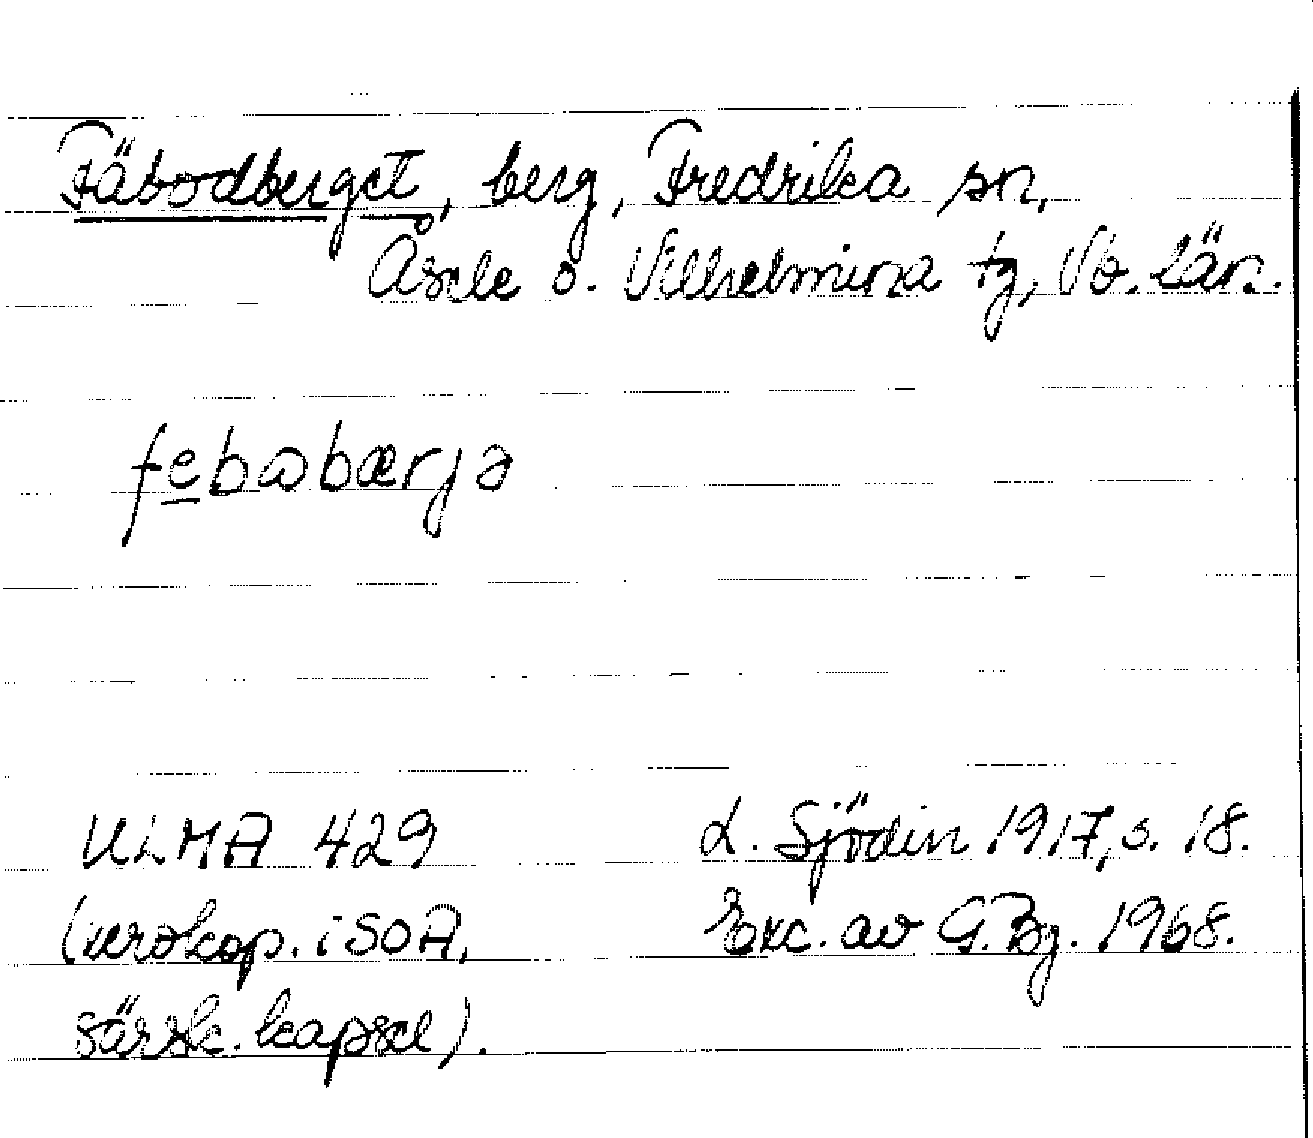 Fäbodberget, berg, Fredrika sn,
Åsele o. Vilhelmina tg, Vb. län.
febɷbærjə
ULMA 429
(xerokop. i SOA,
särsk. kapsel).
L. Sjödin 1917, s. 18.
Exc. av G. Bg. 1968.